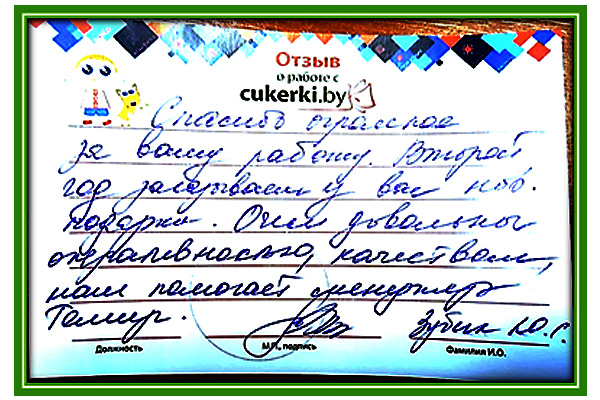 Отзыв
о работе с
cukerki.by
Спасибо огромное
за вашу работу. Второй
год заказываем у вас нов.
подарки. Очень довольны
оперативностью, качеством,
нам помогает менеджер
Тимур.
Зубик Ю.С.
Должность М.П., подпись Фамилия И.О.